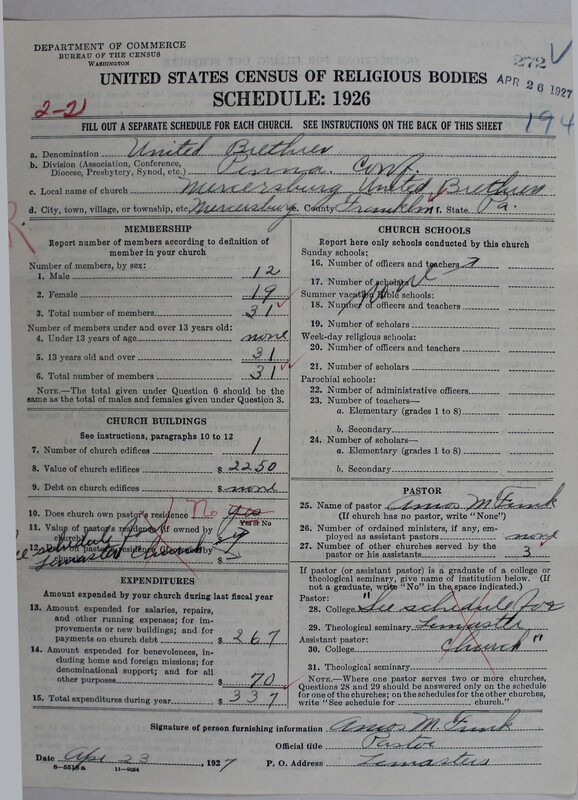 DEPARTMENT OF COMMERCE
BUREAU OF THE CENSUS
WASHINGTON
272 V
APR 26 1927
UNITED STATES CENSUS OF RELIGIOUS BODIES
SCHEDULE: 1926
2-2
194
FILL OUT A SEPARATE SCHEDULE FOR EACH CHURCH. SEE INSTRUCTIONS ON THE BACK OF THIS SHEET
a. Denomination United Brethren
b. Division (Association, Conference, Diocese, Presbytery, Synod, etc.) Penna. Conf.
c. Local name of church Mercersburg United Brethren
d. City, town, village, or township, etc. Mercersburg e. County Franklin f. State Pa.
MEMBERSHIP
Report number of members according to definition of
member in your church
Number of members, by sex:
1. Male 12
2. Female 19
3. Total number of members 31
Number of members under and over 13 years old:
4. Under 13 years of age none
5. 13 years old and over 31
6. Total number of members 31
NOTE.—The total given under Question 6 should be
the same as the total of males and females given under Question 3.
CHURCH BUILDINGS
See instructions, paragraphs 10 to 12
7. Number of church edifices 1
8. Value of church edifices $ 2250
9. Debt on church edifices $ none
10. Does church own pastor's residence No yes
Yes or No
11. Value of pastor's residence (if owned by
church) $
See schedule for
Lemasters Church
EXPENDITURES
Amount expended by your church during last fiscal year
13. Amount expended for salaries, repairs,
and other running expenses; for im-
provements or new buildings; and for
payments on church debt $ 267
14. Amount expended for benevolences, in-
cluding home and foreign missions; for
denominational support; and for all
other purposes $ 70
15. Total expenditures during year $ 337
CHURCH SCHOOLS
Report here only schools conducted by this church
Sunday schools:
16. Number of officers and teachers
17. Number of scholars
none
Summer vacation Bible schools:
18. Number of officers and teachers
19. Number of scholars
Week-day religious schools:
20. Number of officers and teachers
21. Number of scholars
Parochial schools:
22. Number of administrative officers
23. Number of teachers—
a. Elementary (grades 1 to 8)
b. Secondary
24. Number of scholars—
a. Elementary (grades 1 to 8)
b. Secondary
PASTOR
25. Name of pastor Amos M Funk
(If church has no pastor, write "None")
26. Number of ordained ministers, if any, em-
ployed as assistant pastors none
27. Number of other churches served by the
pastor or his assistants 3
If pastor (or assistant pastor) is a graduate of a college or
theological seminary, give name of institution below. (If
not a graduate, write "No" in the space indicated.)
Pastor:
28. College "See schedule for
29. Theological seminary Lemasters
Assistant pastor:
30. College Church"
31. Theological seminary
NOTE.—Where one pastor serves two or more churches,
Questions 28 and 29 should be answered only on the schedule
for one of the churches; on the schedules for the other churches,
write "See schedule for ______ church."
Signature of person furnishing information Amos M. Funk
Official title Pastor
Date Apr 23, 1927 P. O. Address Lemasters